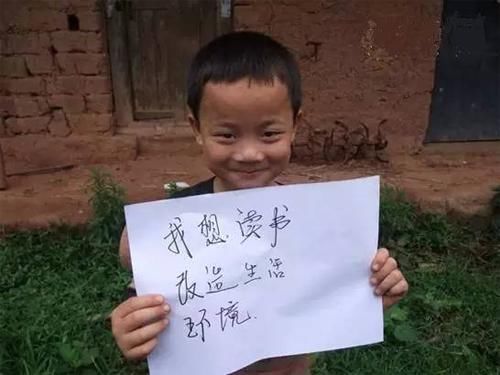 我想读书
改造生活
环境.